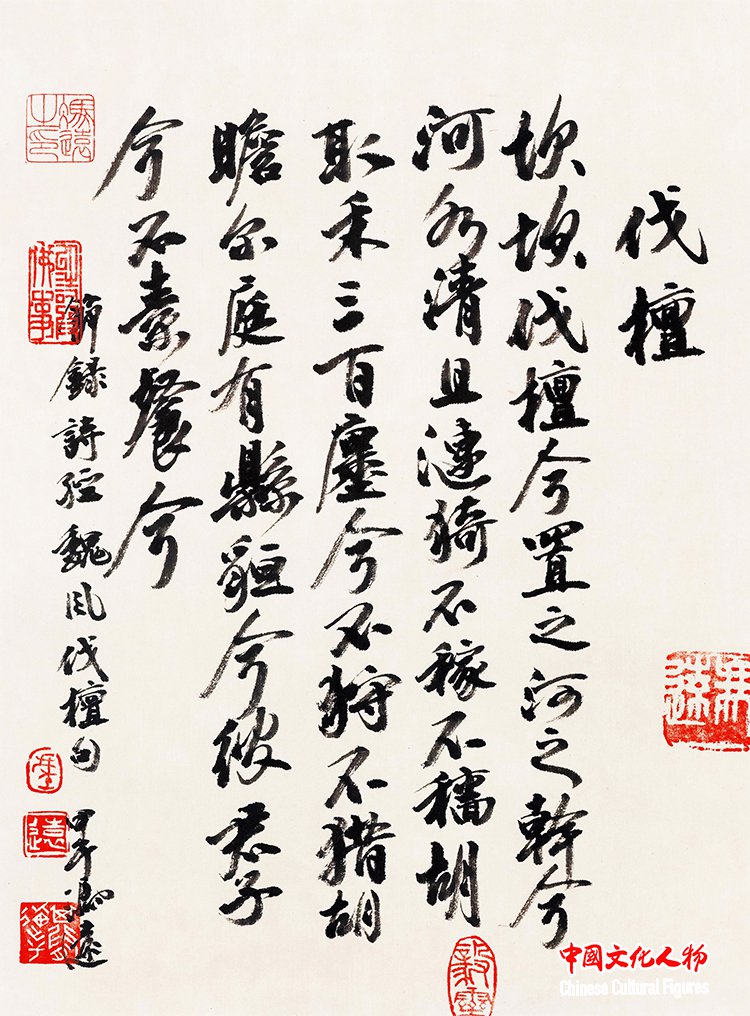 伐檀
坎坎伐檀兮置之河之幹兮
河水清且漣猗不稼不穡胡
取禾三百廛兮不狩不猎胡
瞻尔庭有縣貆兮彼君子
兮不素餐兮
節録詩經魏风伐檀句 甲午馮遠
馮遠之印
遠
中國文化人物
Chinese Cultural Figures